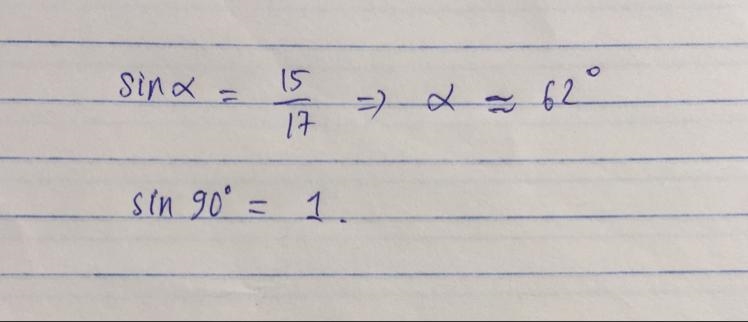 sin α = 15/17 ⇒ α ≈ 62°
sin 90° = 1.